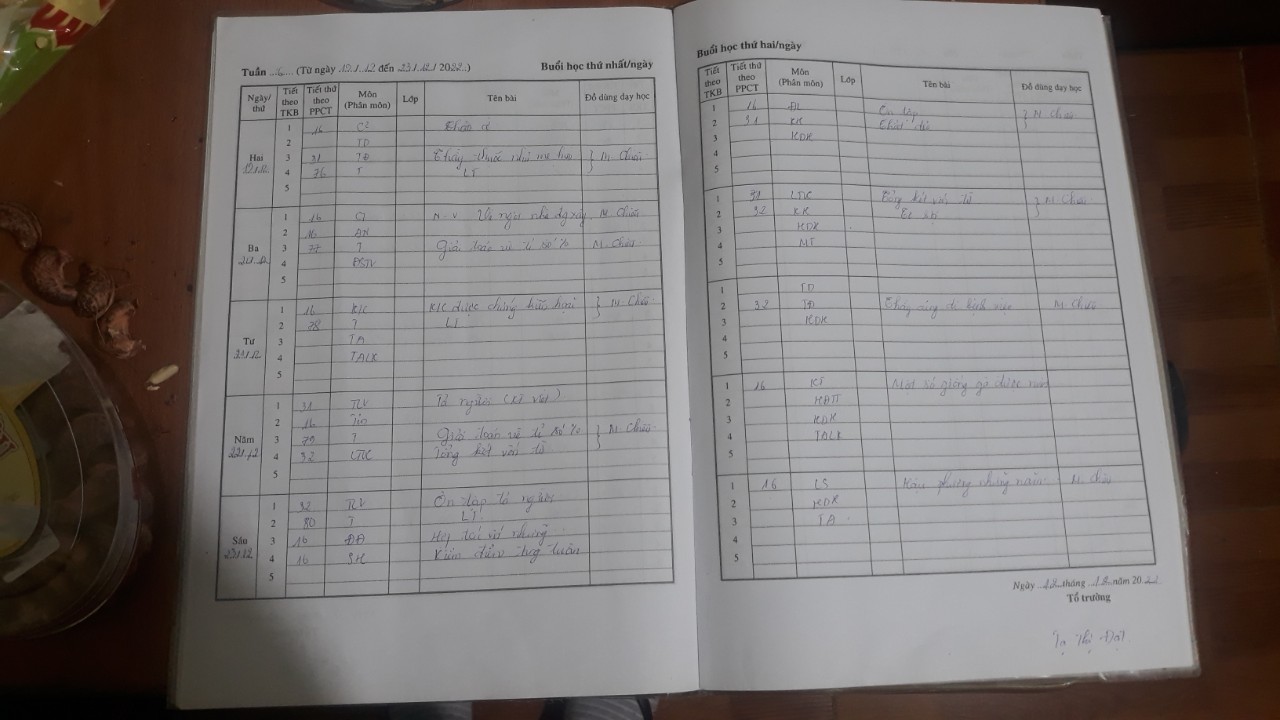 Tuần (Từ ngày 19/12 đến 23/12/2022) Buổi học thứ nhất/ngày
Ngày/ thứ Tiết theo TKB Tiết thứ theo PPCT Môn (Phân môn) Lớp Tên bài Đồ dùng dạy học
Hai 19/12
1 16
2 TD
3 31 TĐ Thầy thuốc như mẹ hiền M. Chiếu
4 76 T LT
5
Ba
1 16
2 16 AN
3 77 T Giải toán về tỉ số % M. Chiếu
4 ĐSTV
5
Tư 21/12
1 16 K/C K/C được chứng M. Chiếu
2 78 T LT
3 TA
4 TALK
5
Năm 22/12
1 31 TLV Tả người (KT viết)
2 16 Tin
3 79 T Giải toán về tỉ số % M. Chiếu
4 32 LTVC Tổng kết vốn từ
5
Sáu 23/12
1 32 TLV Ôn tập tả người
2 80 T LT
3 16 ĐĐ
4 16 SH Kiểm điểm trong tuần
5
Buổi học thứ hai/ngày
Tiết theo TKB Tiết thứ theo PPCT Môn (Phân môn) Lớp Tên bài Đồ dùng dạy học
1 16 ĐL Ôn tập M. Chiếu
2 31 KH Chất dẻo
3 HDH
4
5
1 32 LTVC Tổng kết vốn từ M. Chiếu
2 32 KH Tơ sợi
3 HDH
4 MT
5
1 TD
2 32 TĐ Thầy cúng đi bệnh viện M. Chiếu
3 HDH
4
5
1 16 KT Một số giống gà được nuôi
2
3 HDH
4 TALK
5
1 16 LS Hậu phương những năm M. Chiếu
2 HDH
3 TA
4
5
Ngày tháng 12 năm 2022
Tổ trưởng
Tạ Thị Đạt